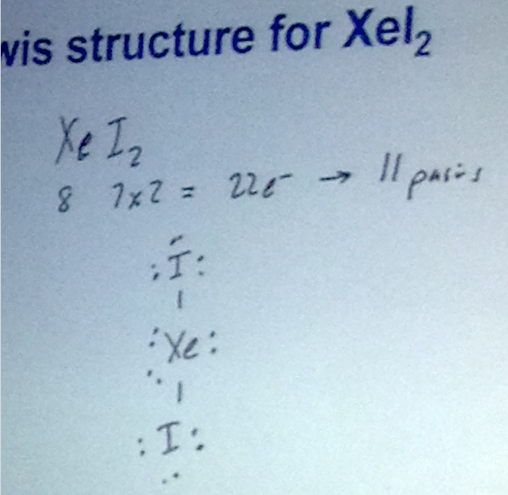 wis structure for XeI₂
XeI₂
8 7x2 = 22e⁻ → 11 pairs
:I:
|
:Xe:
|
:I: